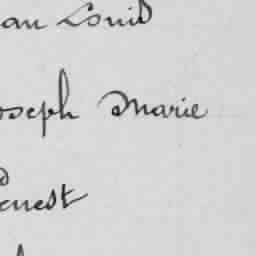 an Louis
oseph Marie
enest